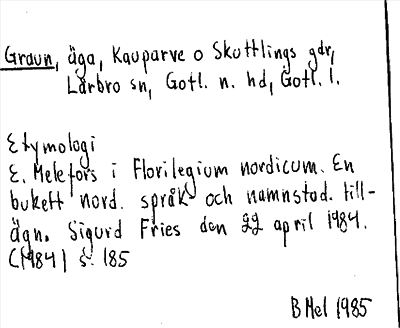 Graun, äga, Kauparve o Skuttlings gdr,
Lärbro sn, Gotl. n. hd, Gotl. l.
Etymologi
E. Melefors i Florilegium nordicum. En
bukett nord. språk- och namnstud. till-
ägn. Sigurd Fries den 22 april 1984.
(1984) s. 185
B Mel 1985